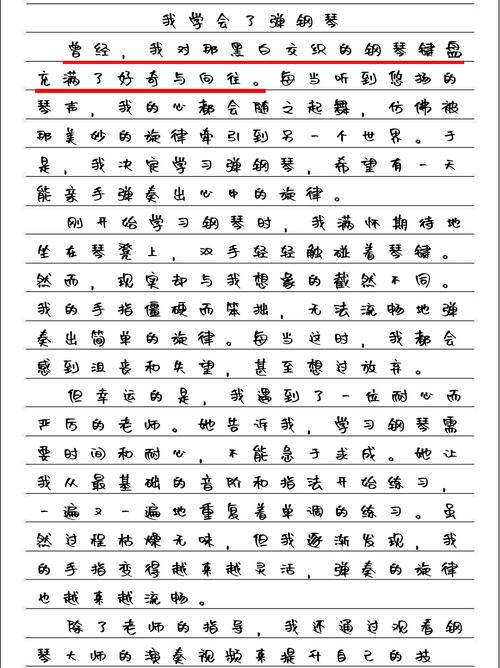 我学会了弹钢琴
曾经，我对那黑白交织的钢琴键盘
充满了好奇与向往。每当听到悠扬的
琴声，我的心都会随之起舞，仿佛被
那美妙的旋律牵引到另一个世界。于
是，我决定学习弹钢琴，希望有一天
能亲手弹奏出心中的旋律。
刚开始学习钢琴时，我满怀期待地
坐在琴凳上，双手轻轻触碰着琴键。
然而，现实却与我想象的截然不同。
我的手指僵硬而笨拙，无法流畅地弹
奏出简单的旋律。每当这时，我都会
感到沮丧和失望，甚至想过放弃。
但幸运的是，我遇到了一位耐心而
严厉的老师。她告诉我，学习钢琴需
要时间和耐心，不能急于求成。她让
我从最基础的音阶和指法开始练习，
一遍又一遍地重复着单调的练习。虽
然过程枯燥无味，但我逐渐发现，我
的手指变得越来越灵活，弹奏的旋律
也越来越流畅。
除了老师的指导，我还通过观看钢
琴大师的演奏视频来提升自己的技